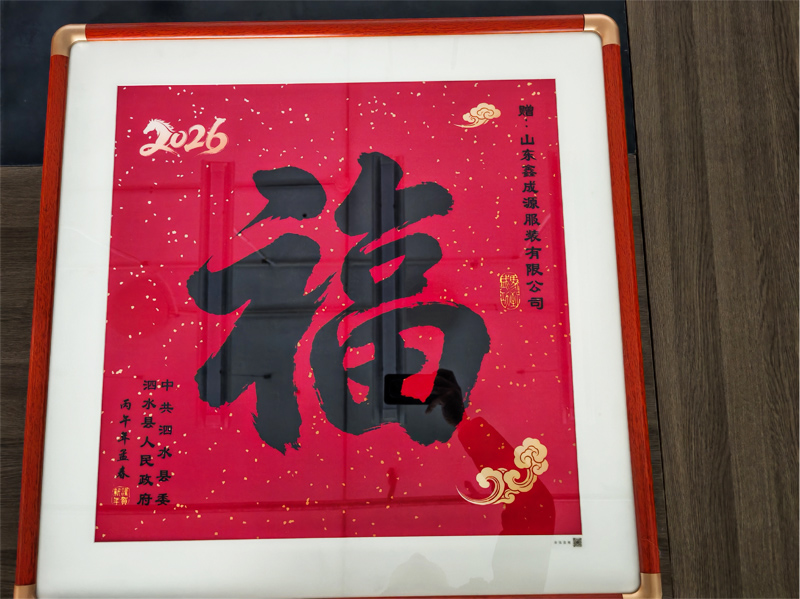 2026
福
赠：山东鑫成源服装有限公司
中共泗水县委
泗水县人民政府
丙午年孟春